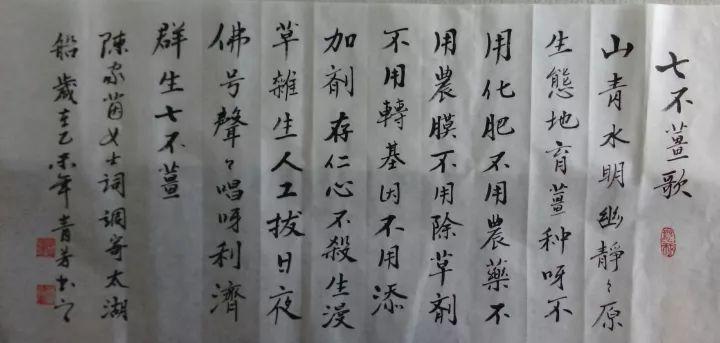 七不薑歌
山青水明幽靜々原
生態地育薑种呀不
用化肥不用農藥不
用農膜不用除草剤
不用轉基因不用添
加剤存仁心不殺生漫
草雜生人工拔日夜
佛号聲々唱呀利濟
群生七不薑
陳家茵女士詞調寄太湖
船歲在乙未年青芳书